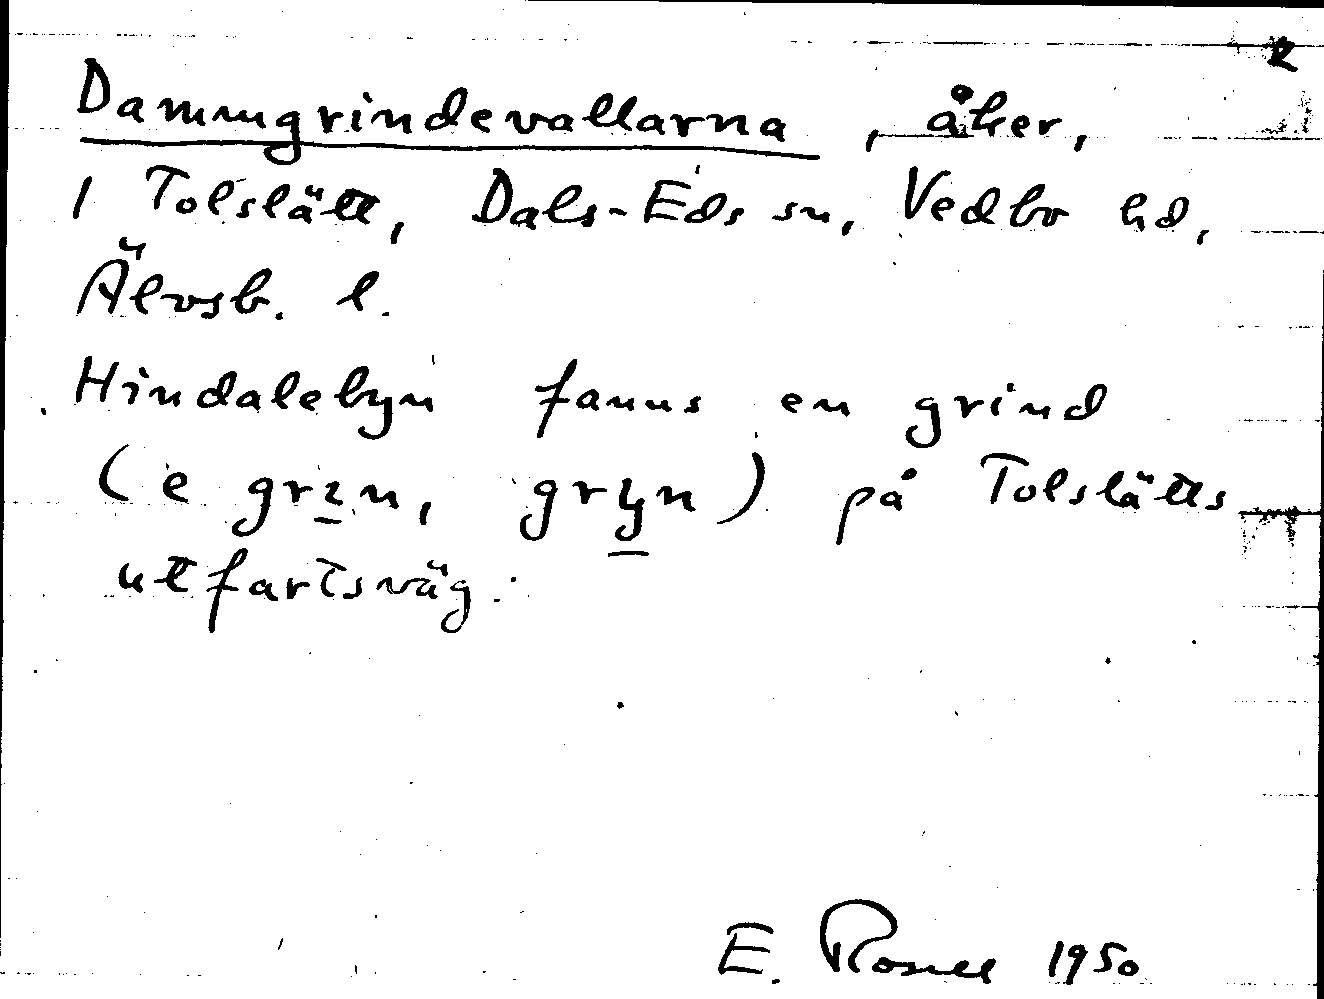 2
Dammgrindevallarna, åker,
1 Tolslätt, Dals-Eds sn, Vedbo hd,
Älvsb. l.
Hindalebyn fanns en grind
(e grɪn, gryn) på Tolslätts
utfartsväg.
E. Rosell 1950